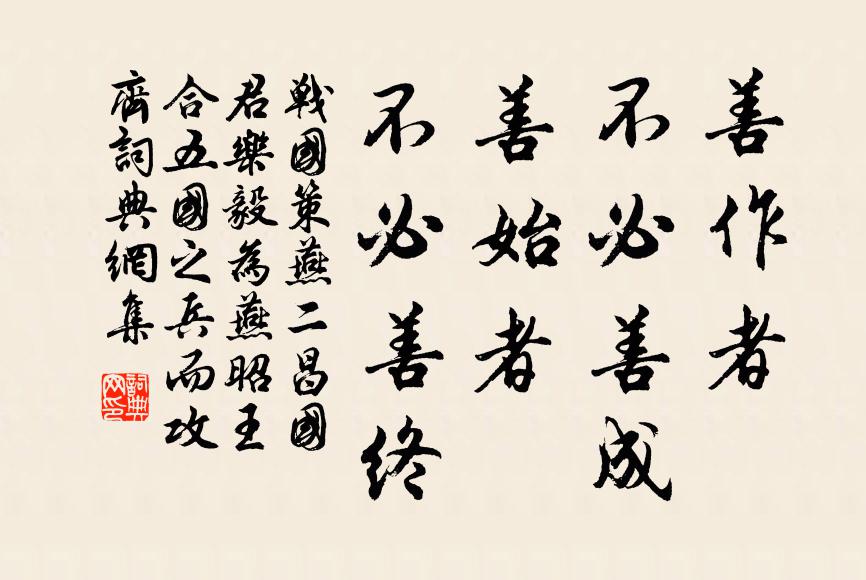 善作者
不必善成
善始者
不必善終
戰國策燕二昌國
君樂毅為燕昭王
合五國之兵而攻
齊詞典網集
詞典
网印